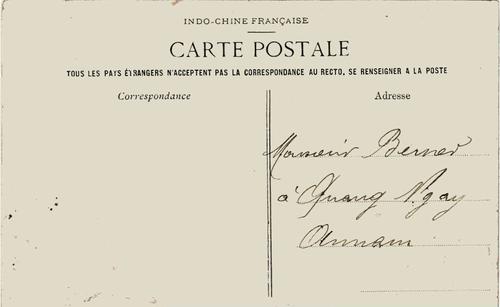 INDO-CHINE FRANÇAISE
CARTE POSTALE
TOUS LES PAYS ÉTRANGERS N'ACCEPTENT PAS LA CORRESPONDANCE AU RECTO, SE RENSEIGNER A LA POSTE
Correspondance
Adresse
Monsieur Berner
à Quang Ngay
Annam